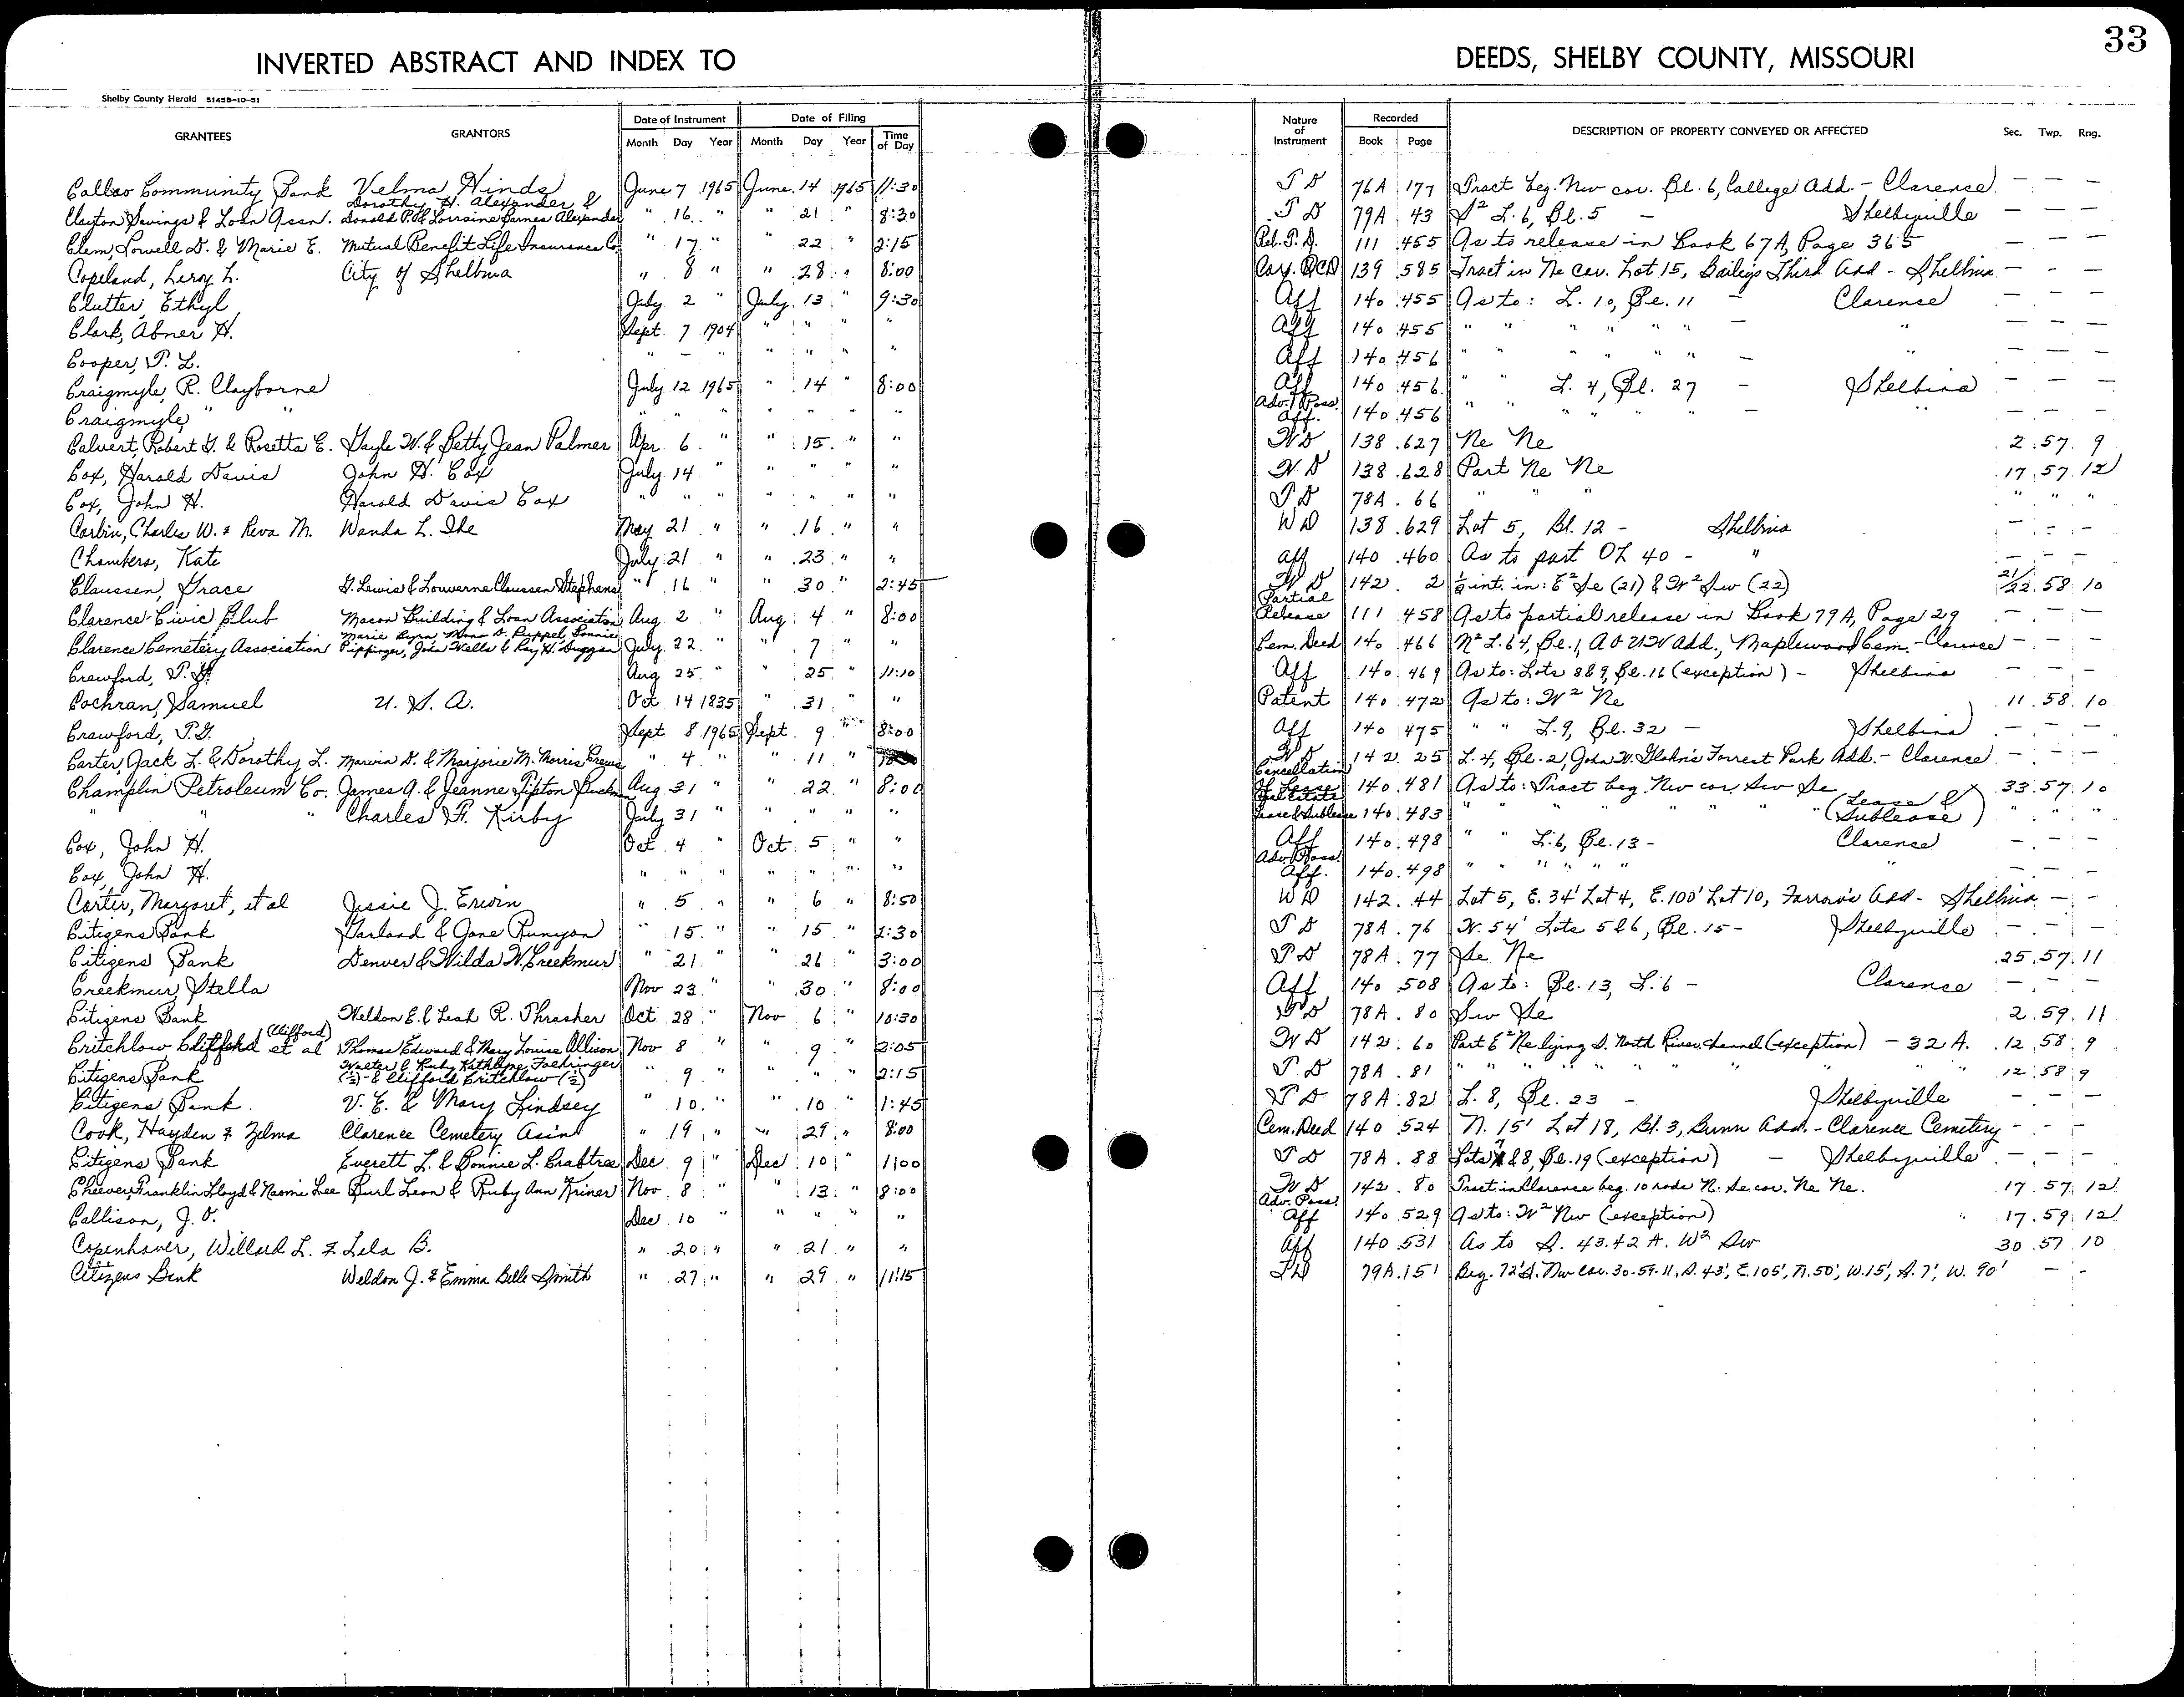 33
INVERTED ABSTRACT AND INDEX TO DEEDS, SHELBY COUNTY, MISSOURI
Shelby County Herald 51458-10-51
GRANTEES GRANTORS Date of Instrument Date of Filing Nature of Instrument Recorded DESCRIPTION OF PROPERTY CONVEYED OR AFFECTED Sec. Twp. Rng.
Month Day Year Month Day Year Time of Day Book Page
Callao Community Bank Velma Hinds June 7 1965 June 14 1965 11:30 T D 76A 177 Tract beg. Nw cor. Bl. 6, College Add. - Clarence — — —
Clayton Savings & Loan Assn. Dorothy H. Alexander & Donald P. & Lorraine Barnes Alexander " 16 " " 21 " 8:30 T D 79A 43 S² L. 6, Bl. 5 - Shelbyville — — —
Clem, Lowell D. & Marie E. Mutual Benefit Life Insurance Co. " 17 " " 22 " 2:15 Rel. T. D. 111 455 As to release in Book 67A, Page 365 — — —
Copeland, Leroy L. City of Shelbina " 8 " " 28 " 8:00 Cor. QCD 139 585 Tract in Ne cor. Lot 15, Bailey's Third Add - Shelbina — — —
Clutter, Ethyl July 2 " July 13 " 9:30 Aff 140 455 As to: L. 10, Bl. 11 - Clarence — — —
Clark, Abner H. Sept. 7 1904 " " " " Aff 140 455 " " " " " " - " — — —
Cooper, P. L. " - " " " " " Aff 140 456 " " " " " " - " — — —
Craigmyle, R. Clayborne July 12 1965 " 14 " 8:00 Aff 140 456 " " L. 4, Bl. 27 - Shelbina — — —
Craigmyle, " " " " " " " " " Adv. Poss. Aff. 140 456 " " " " " " - " — — —
Calvert, Robert G. & Rosetta E. Gayle W. & Betty Jean Palmer Apr. 6 " " 15 " " W D 138 627 Ne Ne 2 57 9
Cox, Harold Davis John H. Cox July 14 " " " " " W D 138 628 Part Ne Ne 17 57 12
Cox, John H. Harold Davis Cox " " " " " " " T D 78A 66 " " " " " "
Corbin, Charles W. & Reva M. Wanda L. Ihe May 21 " " 16 " " W D 138 629 Lot 5, Bl. 12 - Shelbina — — —
Chambers, Kate July 21 " " 23 " " Aff 140 460 As to part OL 40 - " — — —
Claussen, Grace G. Lewis & Louwerne Claussen Stephens " 16 " " 30 " 2:45 W D 142 2 ½ int. in: E² Se (21) & W² Sw (22) 21/22 58 10
Clarence Civic Club Macon Building & Loan Association Aug 2 " Aug 4 " 8:00 Partial Release 111 458 As to partial release in Book 79A, Page 29 — — —
Clarence Cemetery Association Marie Byrn, Mona D. Ruppel, Bonnie Pippinger, John Wells & Ray H. Duggan July 22 " " 7 " " Cem. Deed 140 466 N² L. 64, Bl. 1, A O U W Add., Maplewood Cem. - Clarence — — —
Crawford, P. G. Aug 25 " " 25 " 11:10 Aff 140 469 As to: Lots 8 & 9, Bl. 16 (exception) - Shelbina — — —
Cochran, Samuel U. S. A. Oct 14 1835 " 31 " " Patent 140 472 As to: W² Ne 11 58 10
Crawford, P. G. Sept 8 1965 Sept. 9 " 8:00 Aff 140 475 " " L. 9, Bl. 32 - Shelbina — — —
Carter, Jack L. & Dorothy L. Marvin D. & Marjorie M. Morris Crews " 4 " " 11 " W D 142 25 L. 4, Bl. 2, John W. Forrest Park Add. - Clarence — — —
Champlin Petroleum Co. James A. & Jeanne Tipton Buckman Aug 31 " " 22 " 8:00 Cancellation of Lease 140 481 As to: Tract beg. Nw cor. Sw Se 33 57 10
" " " Charles F. Kirby July 31 " " " " " Real Estate Lease & Sublease 140 483 " " " " " " (Lease & Sublease) " " "
Cox, John H. Oct 4 " Oct 5 " " Aff 140 498 " " L. 6, Bl. 13 - Clarence — — —
Cox, John H. " " " " " " " Adv. Poss. Aff. 140 498 " " " " " " " — — —
Carter, Margaret, et al Jessie J. Erwin " 5 " " 6 " 8:50 W D 142 44 Lot 5, E. 34' Lot 4, E. 100' Lot 10, Farrow's Add - Shelbina — — —
Citizens Bank Garland & Jane Runyon " 15 " " 15 " 2:30 T D 78A 76 W. 54' Lots 5 & 6, Bl. 15 - Shelbyville — — —
Citizens Bank Denver & Wilda W. Creekmur " 21 " " 26 " 3:00 T D 78A 77 Se Ne 25 57 11
Creekmur, Stella Nov 23 " " 30 " 8:00 Aff 140 508 As to: Bl. 13, L. 6 - Clarence — — —
Citizens Bank Weldon E. & Leah R. Thrasher Oct 28 " Nov 6 " 10:30 T D 78A 80 Sw Se 2 59 11
Critchlow (Clifford) et al Thomas Edward & Mary Louise Allison Nov 8 " " 9 " 2:05 W D 142 60 Part E² Ne lying S. North River channel (exception) - 32 A. 12 58 9
Citizens Bank Walter & Ruby Kathlyne Foehringer (½) & Clifford Critchlow (½) " 9 " " " " 2:15 T D 78A 81 " " " " " " " " " 12 58 9
Citizens Bank V. E. & Mary Lindsey " 10 " " 10 " 1:45 T D 78A 82 L. 8, Bl. 23 - Shelbyville — — —
Cook, Hayden & Zelma Clarence Cemetery Ass'n " 19 " " 29 " 8:00 Cem. Deed 140 524 N. 15' Lot 18, Bl. 3, Bunn Add. - Clarence Cemetery — — —
Citizens Bank Everett L. & Bonnie L. Crabtree Dec. 9 " Dec 10 " 1:00 T D 78A 88 Lots 7 & 8, Bl. 19 (exception) - Shelbyville — — —
Cheever, Franklin Lloyd & Naomi Lee Burl Leon & Ruby Ann Kriner Nov. 8 " " 13 " 8:00 W D 142 80 Tract in Clarence beg. 10 rods N. Se cor. Ne Ne. 17 57 12
Callison, J. O. Dec 10 " " " " " Adv. Poss. Aff 140 529 As to: W² Nw (exception) 17 59 12
Copenhaver, Willard L. & Lela B. " 20 " " 21 " " Aff 140 531 As to S. 43.42 A. W² Sw 30 57 10
Citizens Bank Weldon J. & Emma Belle Smith " 27 " " 29 " 11:15 T D 79A 151 Beg. 72' S. Nw cor. 30-59-11, S. 43', E. 105', N. 50', W. 15', S. 7', W. 90' — —